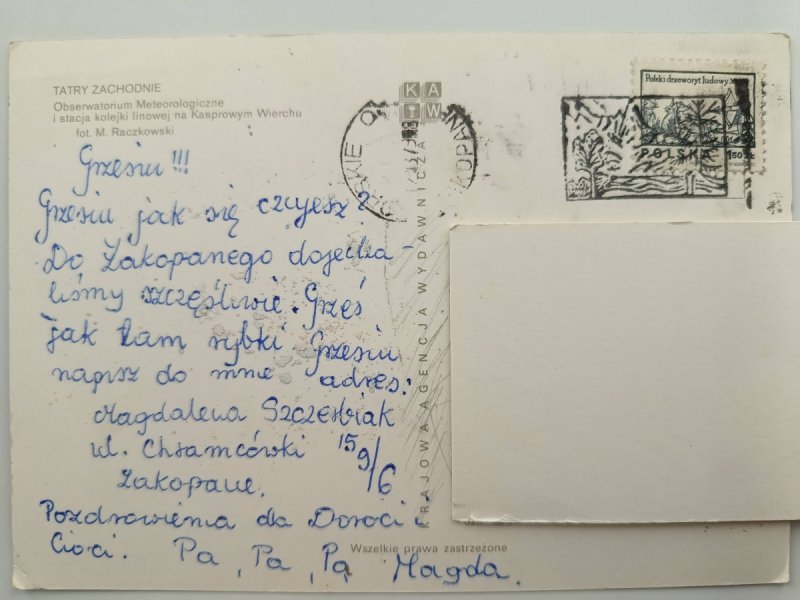 TATRY ZACHODNIE
Obserwatorium Meteorologiczne
i stacja kolejki linowej na Kasprowym Wierchu
fot. M. Raczkowski
KAW
Polski drzeworyt ludowy
POLSKA
150 zł
KRAJOWA AGENCJA WYDAWNICZA
Grzesiu !!!
Grzesiu jak się czujesz?
Do Zakopanego dojecha-
liśmy szczęśliwie. Grześ
jak tam rybki Grzesiu
napisz do mnie adres:
Magdalena Szczerbiak
ul. Chramcówki
Zakopane.
Pozdrowienia dla Doroci i
Cioci. Pa, Pa, Pa Magda.
Wszelkie prawa zastrzeżone